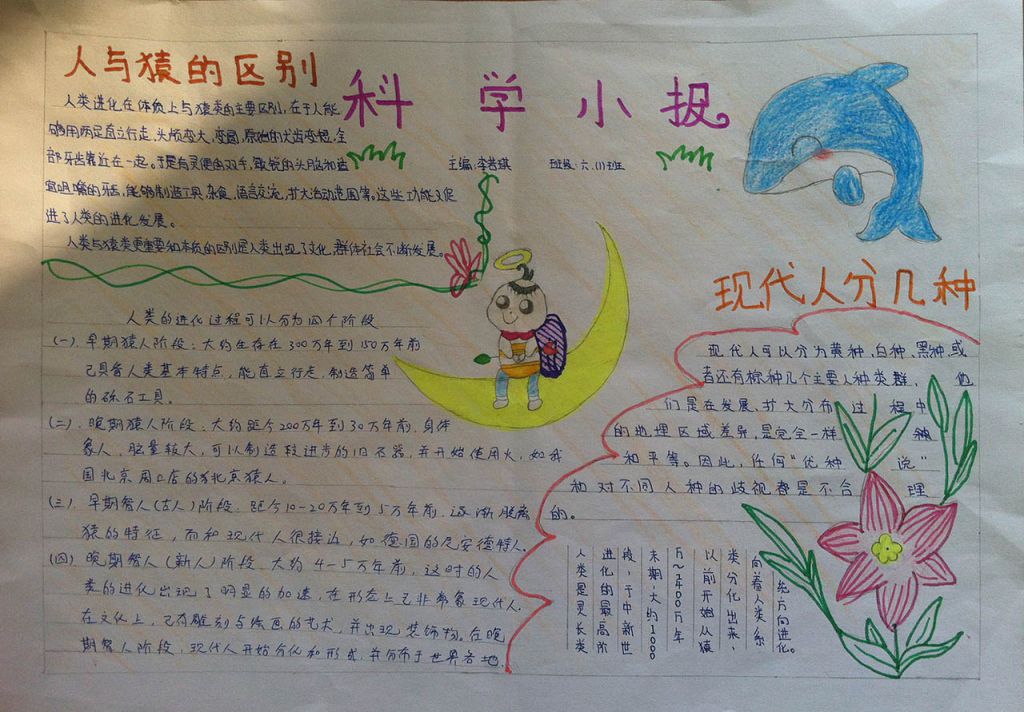 人与猿的区别
科学小报
人类进化在体质上与猿类的主要区别,在于人能
够用两足直立行走,头颅变大,变圆,原始的犬齿变短,全
部牙齿靠近在一起。于是有灵便的双手,敏锐的头脑和造
嘴的牙舌,能够制造工具,杂食,语言交流,扩大活动范围等。这些功能又促
进了人类的进化发展。
人类与猿类更重要和本质的区别是人类出现了文化,群体社会不断发展。
主编:李 琪
班级:六.(1)班
人类的进化过程可以分为四个阶段
(一).早期猿人阶段:大约生存在300万年到150万年前
已具备人类基本特点,能直立行走,制造简单
的砾石工具。
(二).晚期猿人阶段:大约距今200万年到30万年前.身体
象人,脑量较大,可以制造较进步的旧石器,并开始使用火,如我
国北京周口店的北京猿人。
(三).早期智人(古人)阶段.距今10-20万年到5万年前.逐渐脱离
猿的特征,而和现代人很接近,如德国的尼安德特人.
(四)晚期智人(新人)阶段.大约4-5万年前,这时的人
类的进化出现了明显的加速,在形态上已非常象现代人.
在文化上,已有雕刻与绘画的艺术,并出现装饰物.在晚
期智人阶段,现代人开始分化和形成,并分布于世界各地.
现代人分几种
现代人可以分为黄种、白种、黑种、或
者还有棕种几个主要人种类群、他
们是在发展、扩大分布过程中
的地理区域差异,是完全一样
和平等。因此,任何“优种说”
和对不同人种的歧视都是不合理
的。
人类是灵长类
进化的最高阶
段,于中新世
末期,大约1000
万~2400万年
以前开始从猿
类分化出来,
向着人类系
统方向进化。